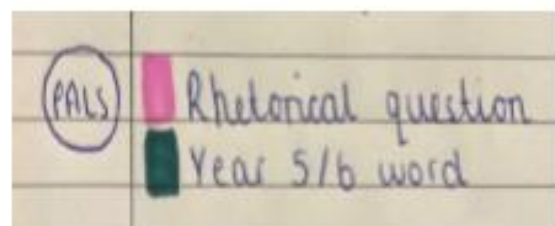 PALS
Rhetorical question
Year 5/6 word